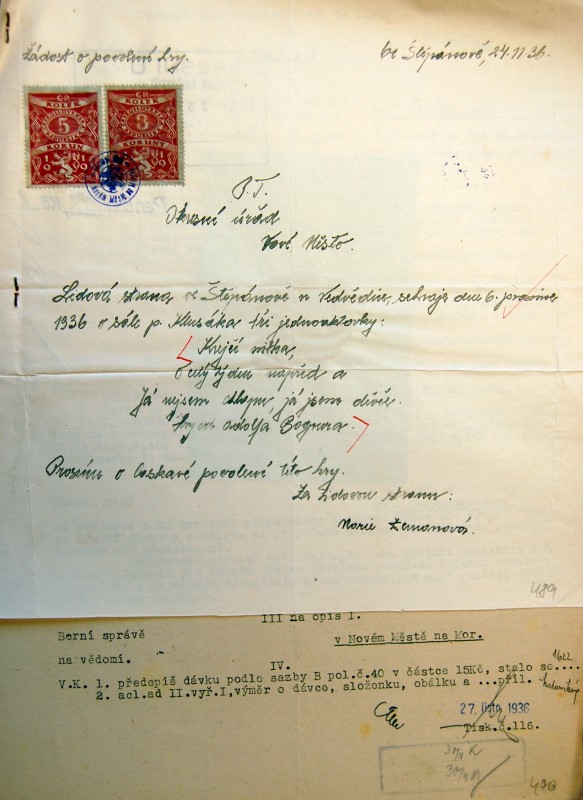 Žádost o povolení hry.
ve Štěpánově, 24.11.36.
KOLEK KOLEK
5 3
KORUN KORUNY
1919 1919
P. T.
Okresní úřad
Nové Město.
Lidová strana ve Štěpánově n Medvědím, sehraje dne 6. prosince
1936 v sále p. Klusáka tři jednoaktovky:
Krejčí nitka,
O celý týden napřed a
Já nejsem chlapec, já jsem děvče.
Hry od Adolfa Bognera.
Prosíme o laskavé povolení této hry.
Za Lidovou stranu:
Marie Zemanová.
489
III na opis 1.
Berní správě
v Novém Městě na Mor.
na vědomí.
IV.
1622
V.K. 1. předepiš dávku podle sazby B pol.č.40 v částce 15Kč, stalo se....
2. acl.ad II.vyř.I,výměr o dávce, složenku, obálku a ...příl.
27. listop. 1936
Tisk.č.116.
30/11 K
30/11
490